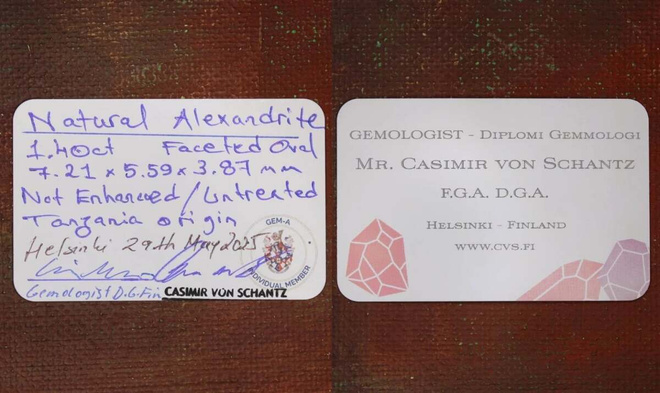 Natural Alexandrite
1.40ct Faceted Oval
7.21 x 5.59 x 3.87 mm
Not Enhanced/Untreated
Tanzania origin
Helsinki 29th May 2025
GEM-A
INDIVIDUAL MEMBER
Gemologist D.G.Fin CASIMIR VON SCHANTZ
GEMOLOGIST - DIPLOMI GEMMOLOGI
MR. CASIMIR VON SCHANTZ
F.G.A. D.G.A.
HELSINKI - FINLAND
WWW.CVS.FI